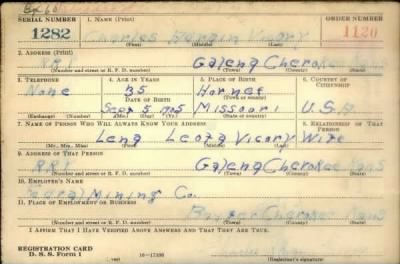 SERIAL NUMBER 1. NAME (Print) ORDER NUMBER
1282 Charles Vicory 1120
(First) (Middle) (Last)
2. ADDRESS (Print)
RR1 Galena Cherokee Kans
(Number and street or R. F. D. number) (Town) (County) (State)
3. TELEPHONE 4. AGE IN YEARS 5. PLACE OF BIRTH 6. COUNTRY OF CITIZENSHIP
None 35 Hornet
DATE OF BIRTH (Town or county)
Sept 5 1905 Missouri U.S.A
(Exchange) (Number) (Mo.) (Day) (Yr.) (State or country)
7. NAME OF PERSON WHO WILL ALWAYS KNOW YOUR ADDRESS 8. RELATIONSHIP OF THAT PERSON
Lena Leota Vicory Wife
(Mr., Mrs., Miss) (First) (Middle) (Last)
9. ADDRESS OF THAT PERSON
RR1 Galena Cherokee Kans
(Number and street or R. F. D. number) (Town) (County) (State)
10. EMPLOYER'S NAME
Mining Co.
11. PLACE OF EMPLOYMENT OR BUSINESS
Baxter Cherokee Kans
(Number and street or R. F. D. number) (Town) (County) (State)
I AFFIRM THAT I HAVE VERIFIED ABOVE ANSWERS AND THAT THEY ARE TRUE.
REGISTRATION CARD
D. S. S. Form 1 (over) 16-17105 (Registrant's signature)